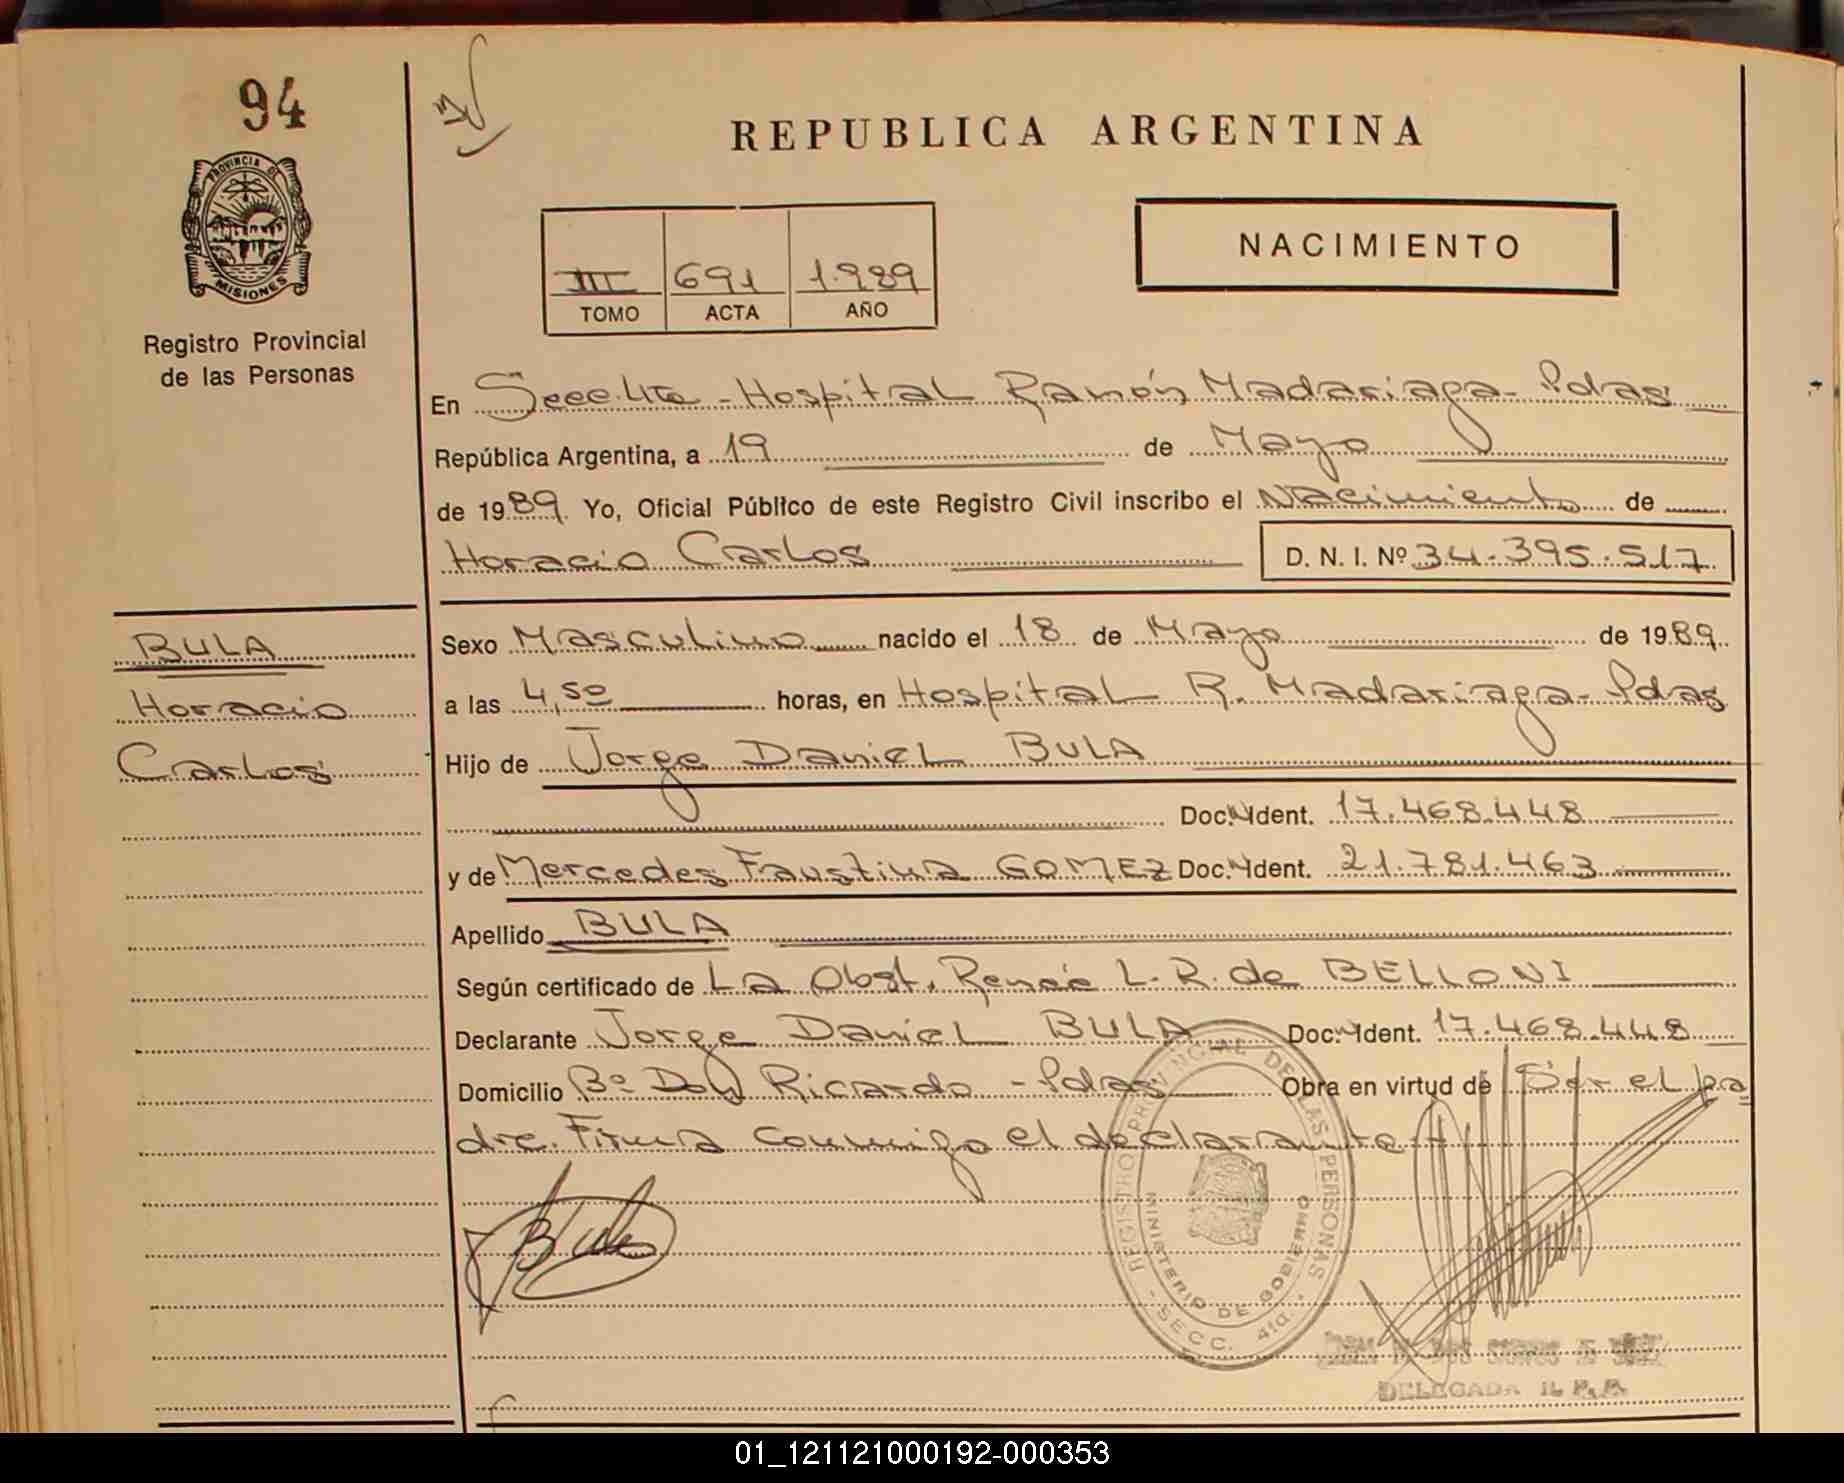 94
PROVINCIA DE
MISIONES
Registro Provincial
de las Personas
REPUBLICA ARGENTINA
NACIMIENTO
III 691 1.989
TOMO ACTA AÑO
En Secc 41a - Hospital Ramón Madariaga - Pdas
República Argentina, a 19 de Mayo
de 1989 Yo, Oficial Público de este Registro Civil inscribo el Nacimiento de
Horacio Carlos D. N. I. Nº 34.395.517
BULA
Horacio
Carlos
Sexo Masculino nacido el 18 de Mayo de 1989
a las 4,50 horas, en Hospital R. Madariaga - Pdas
Hijo de Jorge Daniel BULA
Doc. Ident. 17.468.448
y de Mercedes Faustina GOMEZ Doc. Ident. 21.781.463
Apellido BULA
Según certificado de La Obst. Renée L. R. de BELLONI
Declarante Jorge Daniel BULA Doc. Ident. 17.468.448
Domicilio Bº Don Ricardo - Pdas Obra en virtud de Ser el pa
dre. Firma conmigo el declarante
REGISTRO PROVINCIAL DE LAS PERSONAS
MINISTERIO DE GOBIERNO
- SECC. 41a. -
DELEGADA R. P. P.
01_121121000192-000353